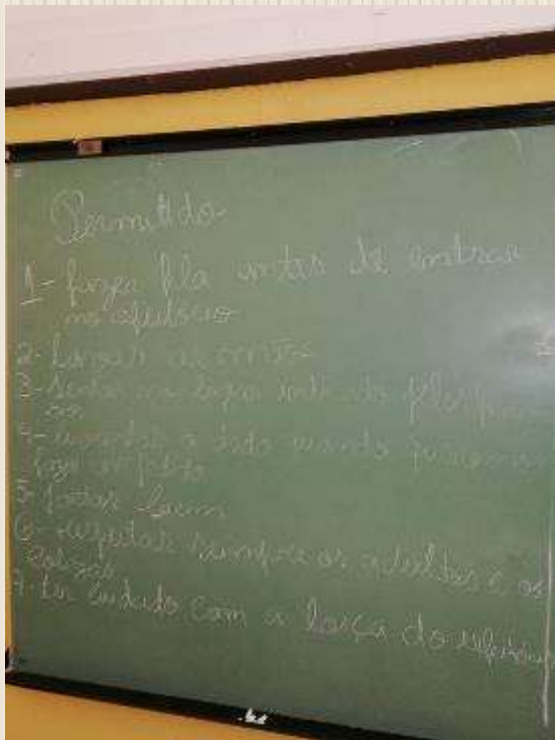 Permitido
1- fazer fila antes de entrar
no refeitório
2- Lavar as mãos
3- Sentar no lugar indicado
4- levantar o dedo quando
5- falar baixo
6- respeitar sempre os adultos e os
colegas
7- ter cuidado com a loiça do refeitório